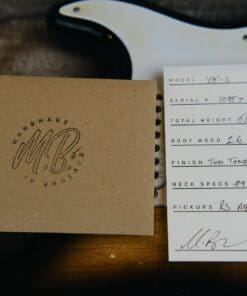 HANDMADE
MB
IN ENGLAND
MODEL 'S8-S
SERIAL # 10957
TOTAL WEIGHT 6
BODY WOOD
FINISH TWO TONE
NECK SPECS .89
PICKUPS RS